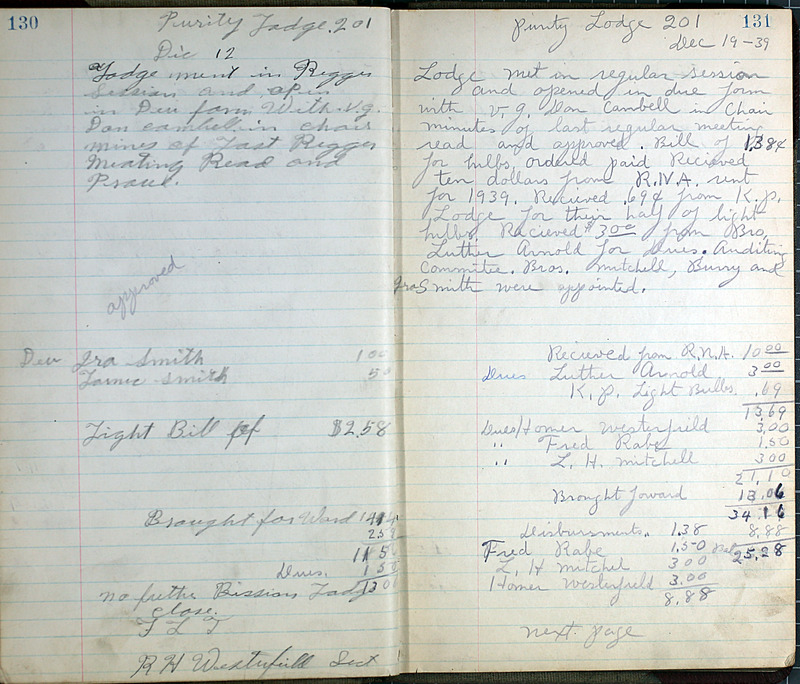 130
Purity Lodge. 201
Dec 12
Lodge ment in Regger
Session and open
in Deu form With. V.g.
Don cambel in chair
mines of Last Regger
Meating Read and
Praud.
approved
Deu Ira Smith 1 00
James Smith 50
Light Bill of $2.58
Brought for Ward
2 58
11 5
Dues. 1 50
13 0
no futher Bission Lodg
close.
F L T
R H Westerfield Sect
131
Purity Lodge 201
Dec 19-39
Lodge met in regular session
and opened in due form
with V.g. Don Cambell in Chair
minutes of last regular meeting
read and approved. Bill of 1.38¢
for bulbs, orderd paid Recieved
ten dollars from R.N.A. rent
for 1939. Recieved .69¢ from K.P.
Lodge for their half of light
bulbs. Racieved $3.00 from Bro,
Luther Arnold for Dues. Auditing
Committee. Bros. Mitchell, Burry and
Ira Smith were appointed.
Recieved from R.N.A. 10 00
Dues Luther Arnold. 3 00
K.P. Light Bulbs. .69
13,69
Dues/Homer Westerfield 3,00
,, Fred Rabe 1,50
,, L. H. Mitchell 3 00
21,19
Brought Foward 13,06
34 16
Disbursments. 1.38 8,88
Fred Rabe 1,50 Bal 25,28
L. H Mitchel 3 00
Homer Westerfield 3.00
8,88
next page